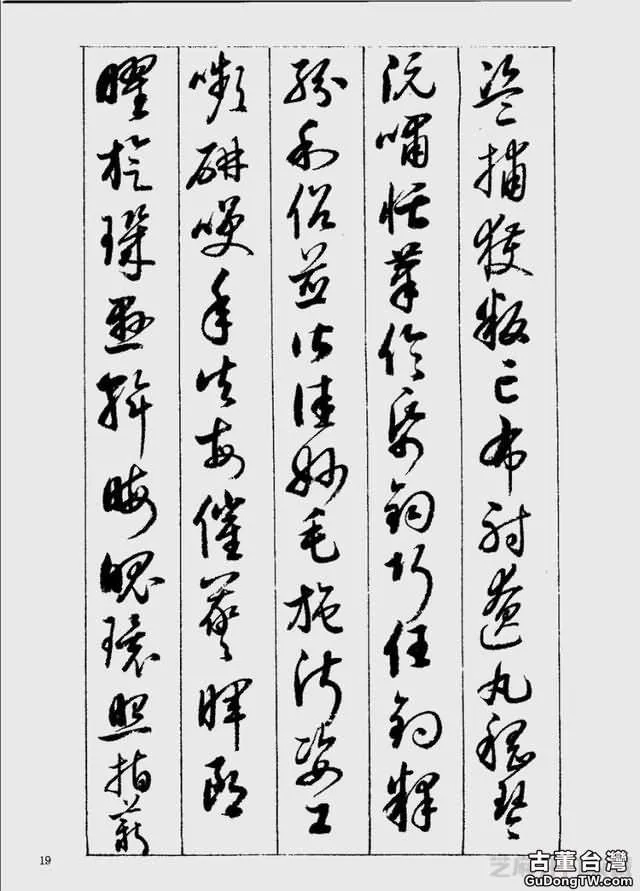 盜捕獲叛亡布射遼丸嵇琴
阮嘯恬筆倫帋鈞巧任釣釋
紛利俗並皆佳妙毛施淑姿工
嚬妍咲年矢每催羲暉朗
曜旋璣懸斡晦魄環照指薪
19
古董台灣
GuDongTW.com